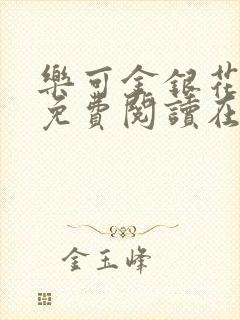 樂可金銀花
免費閱讀在
金玉峰